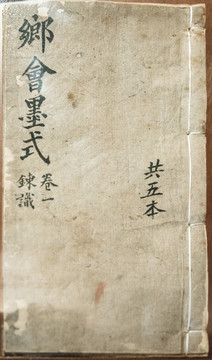 鄉會墨式
卷一
鍊識
共五本